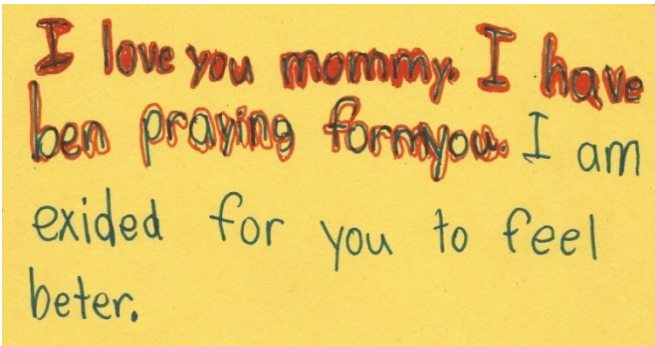 I love you mommy. I have
ben praying formyou. I am
exided for you to feel
beter.